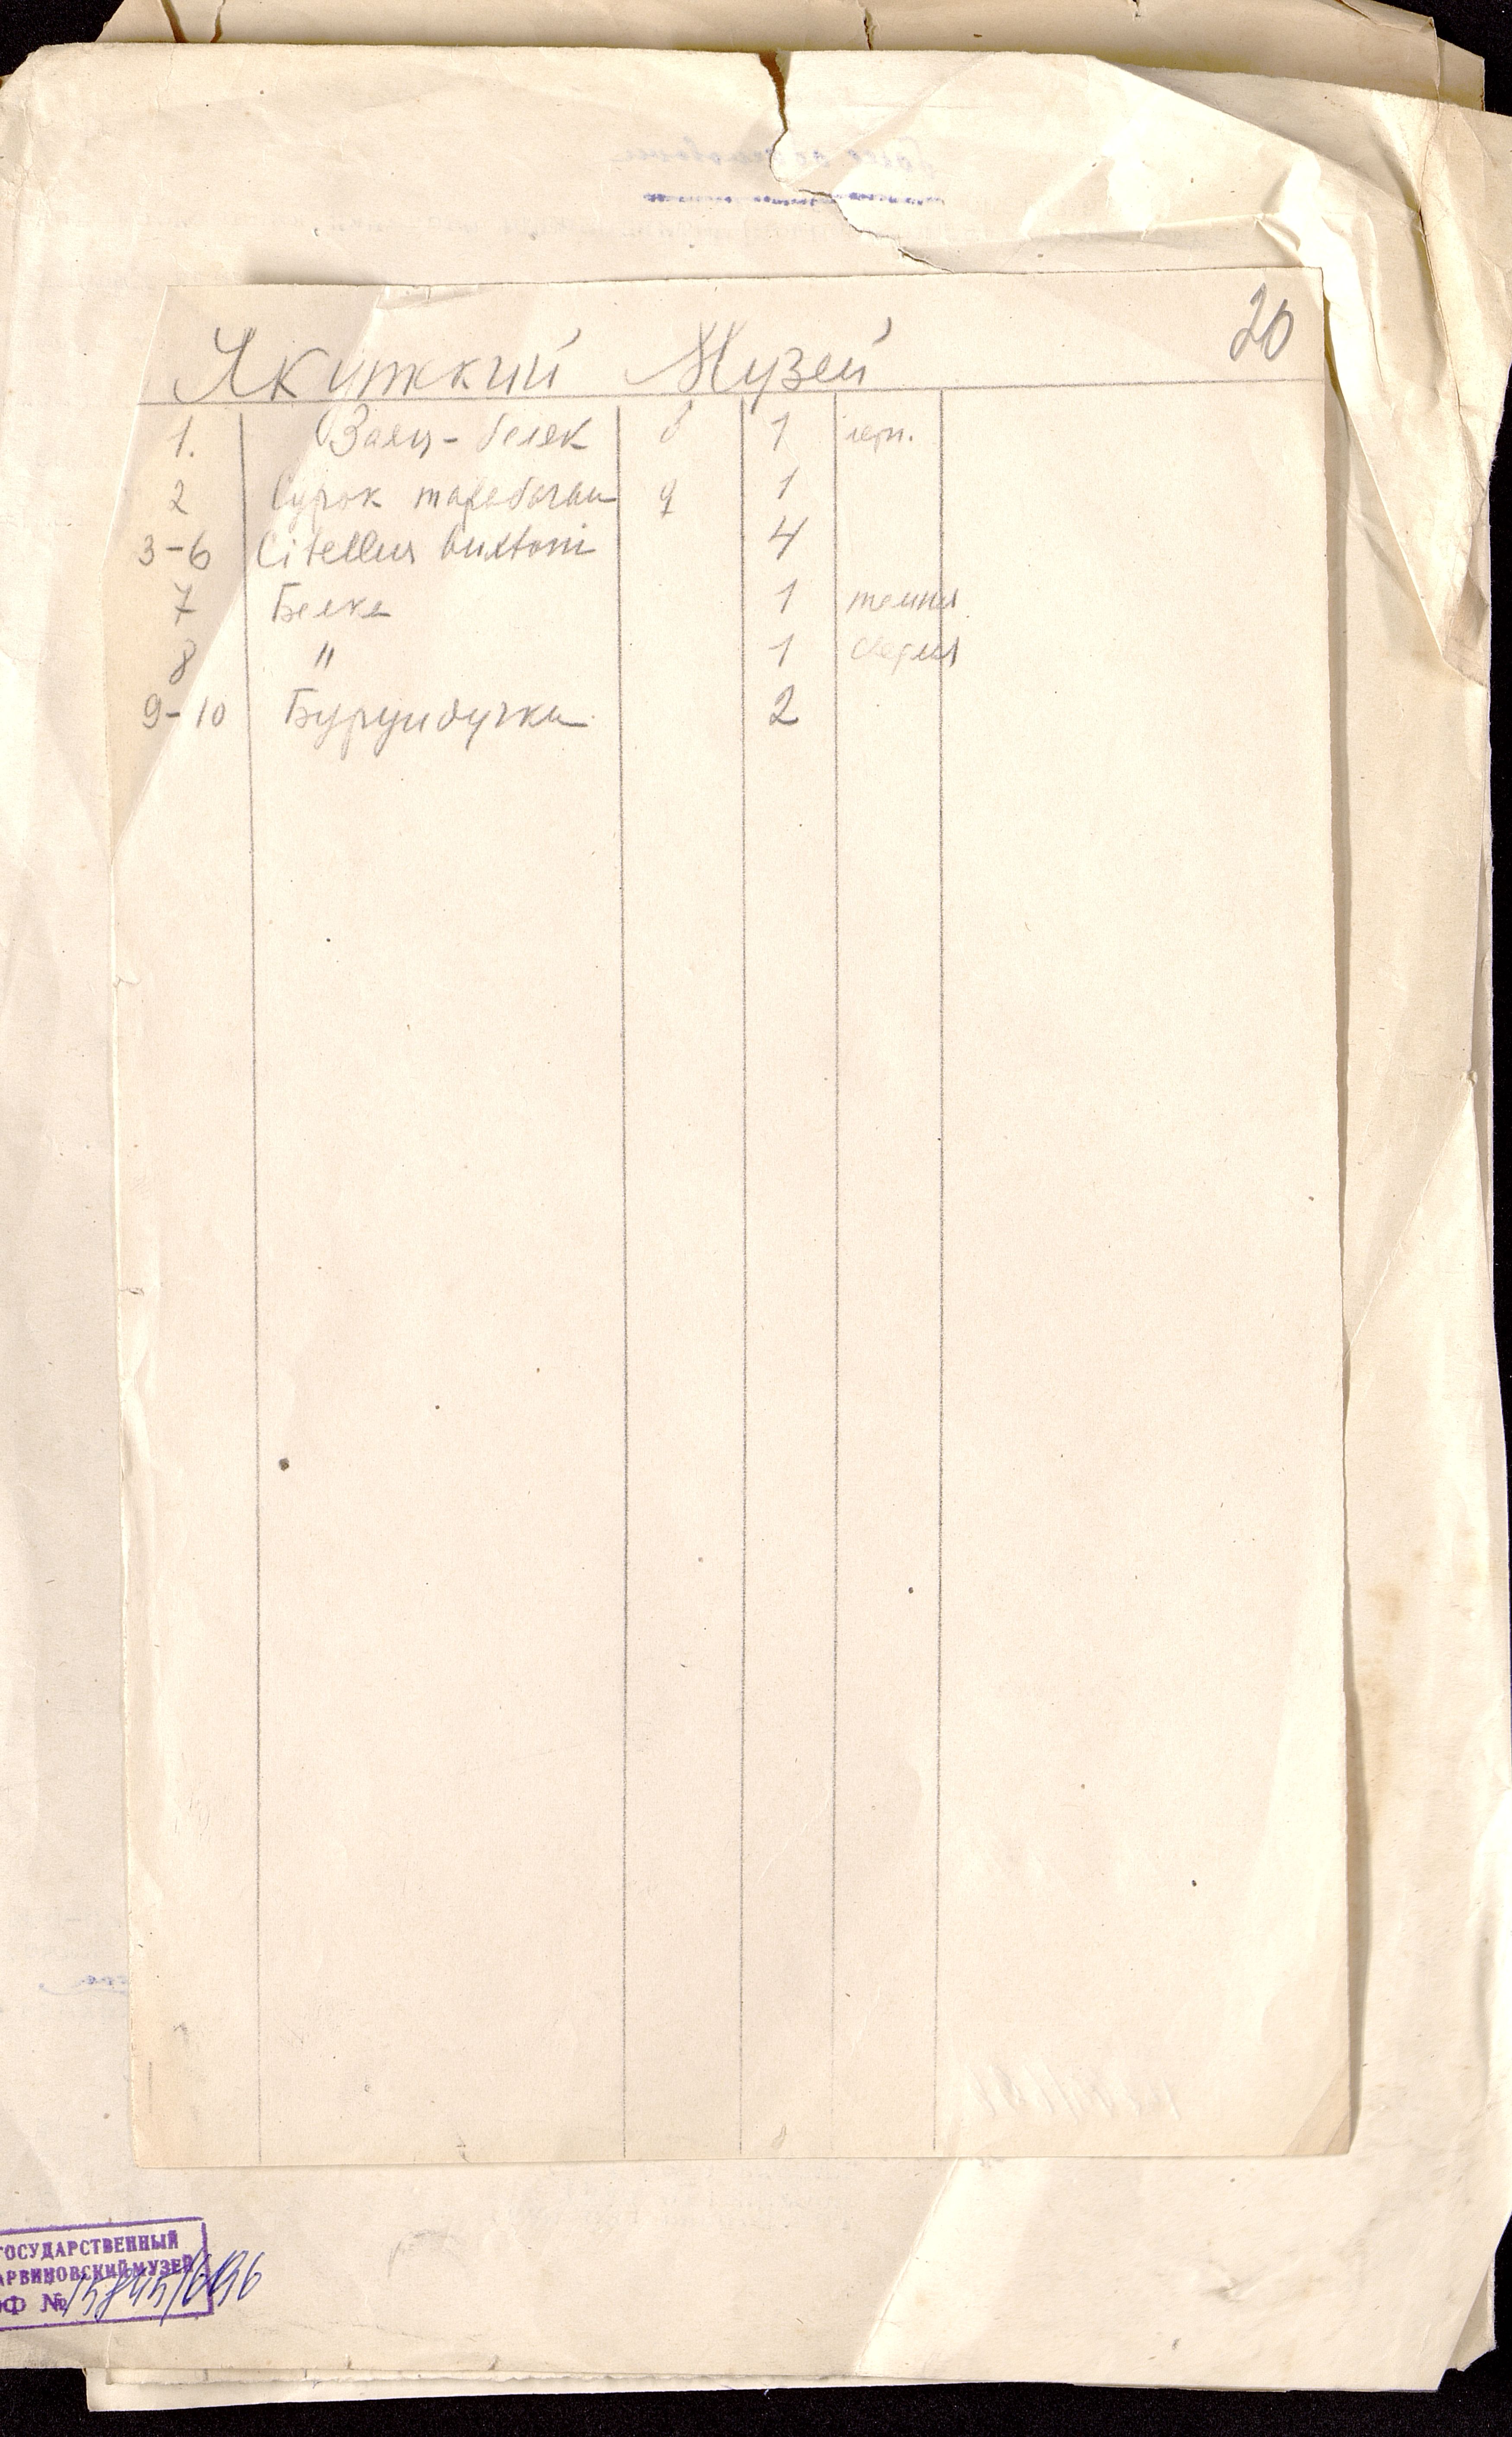 20
Якутккий Музей
1. Заяц-беляк ♂ 1 черн.
2 Сурок тарабаган ♀ 1
3-6 Citellus buxtoni 4
7 Белка 1 темная
8 " 1 серая
9-10 Бурундучки 2
ГОСУДАРСТВЕННЫЙ
АРВИНОВСКИЙ МУЗЕЙ
ОФ №